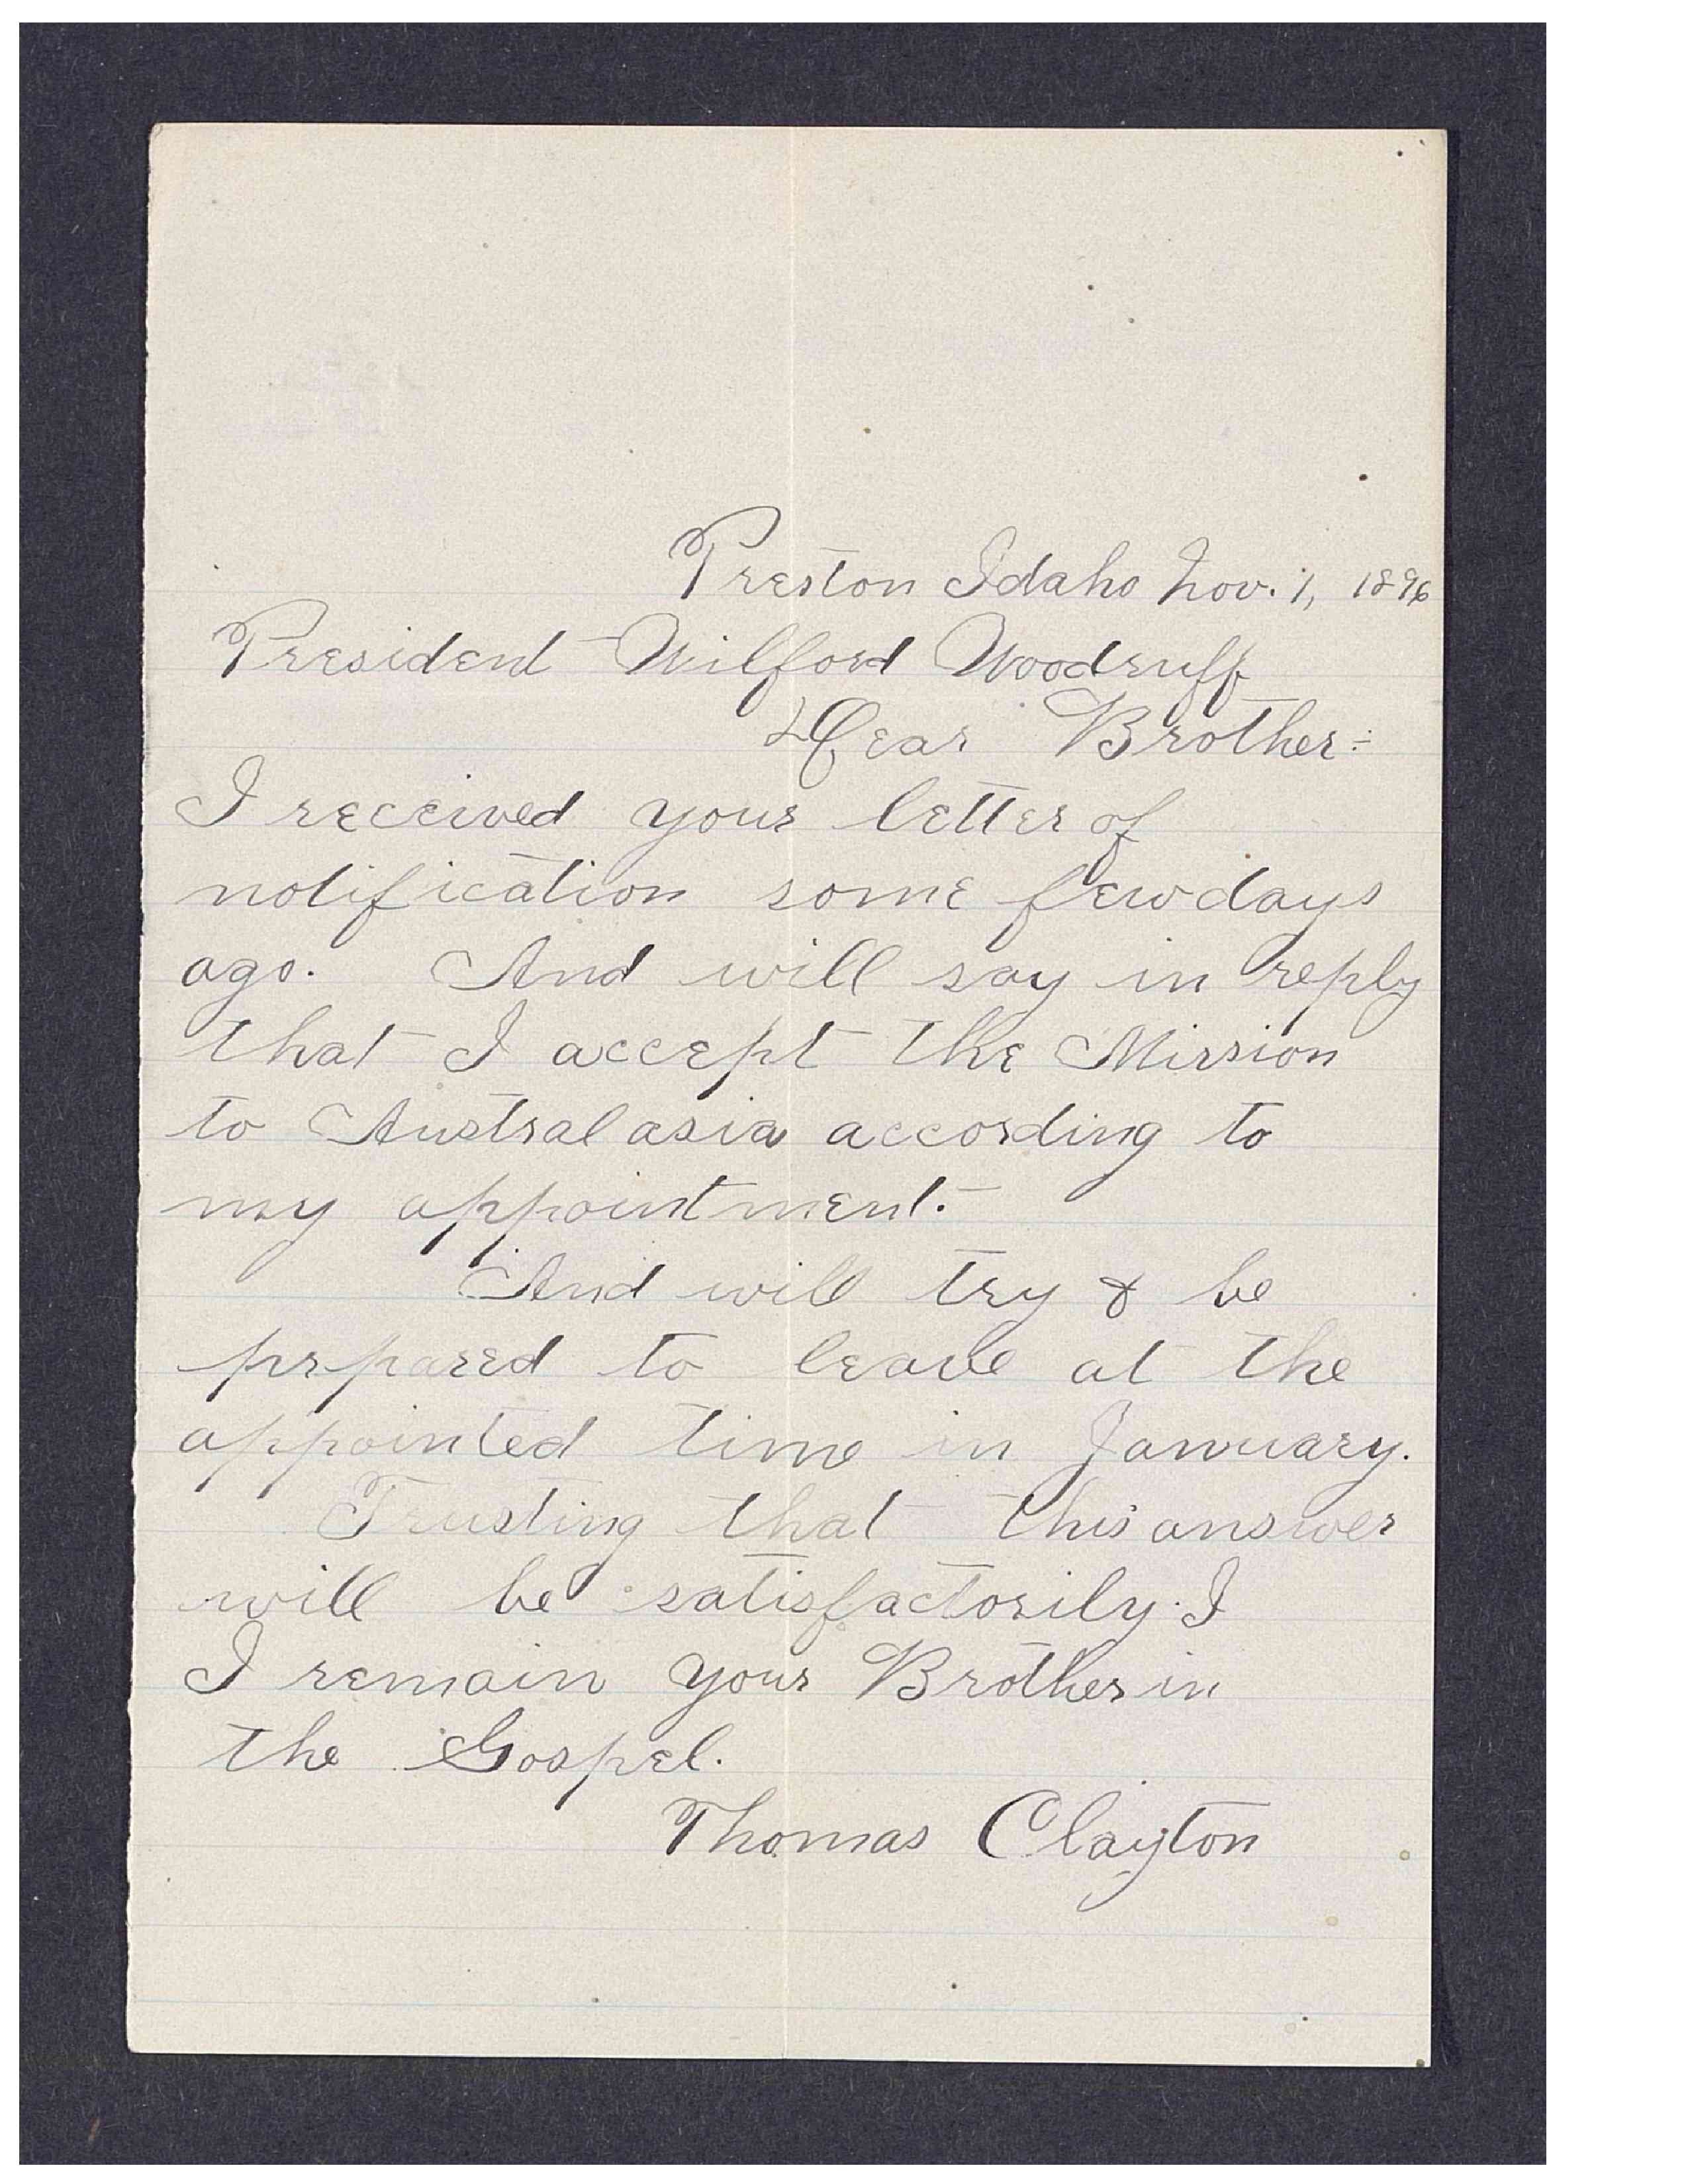 Preston Idaho Nov. 1, 1896
President Wilford Woodruff
Dear Brother:-
I received your letter of
notification some few days
ago. And will say in reply
that I accept the Mission
to Australasia according to
my appointment.
And will try & be
prpared to leave at the
appointed time in January.
Trusting that this answer
will be satisfactorily. I
I remain your Brother in
the Gospel.
Thomas Clayton